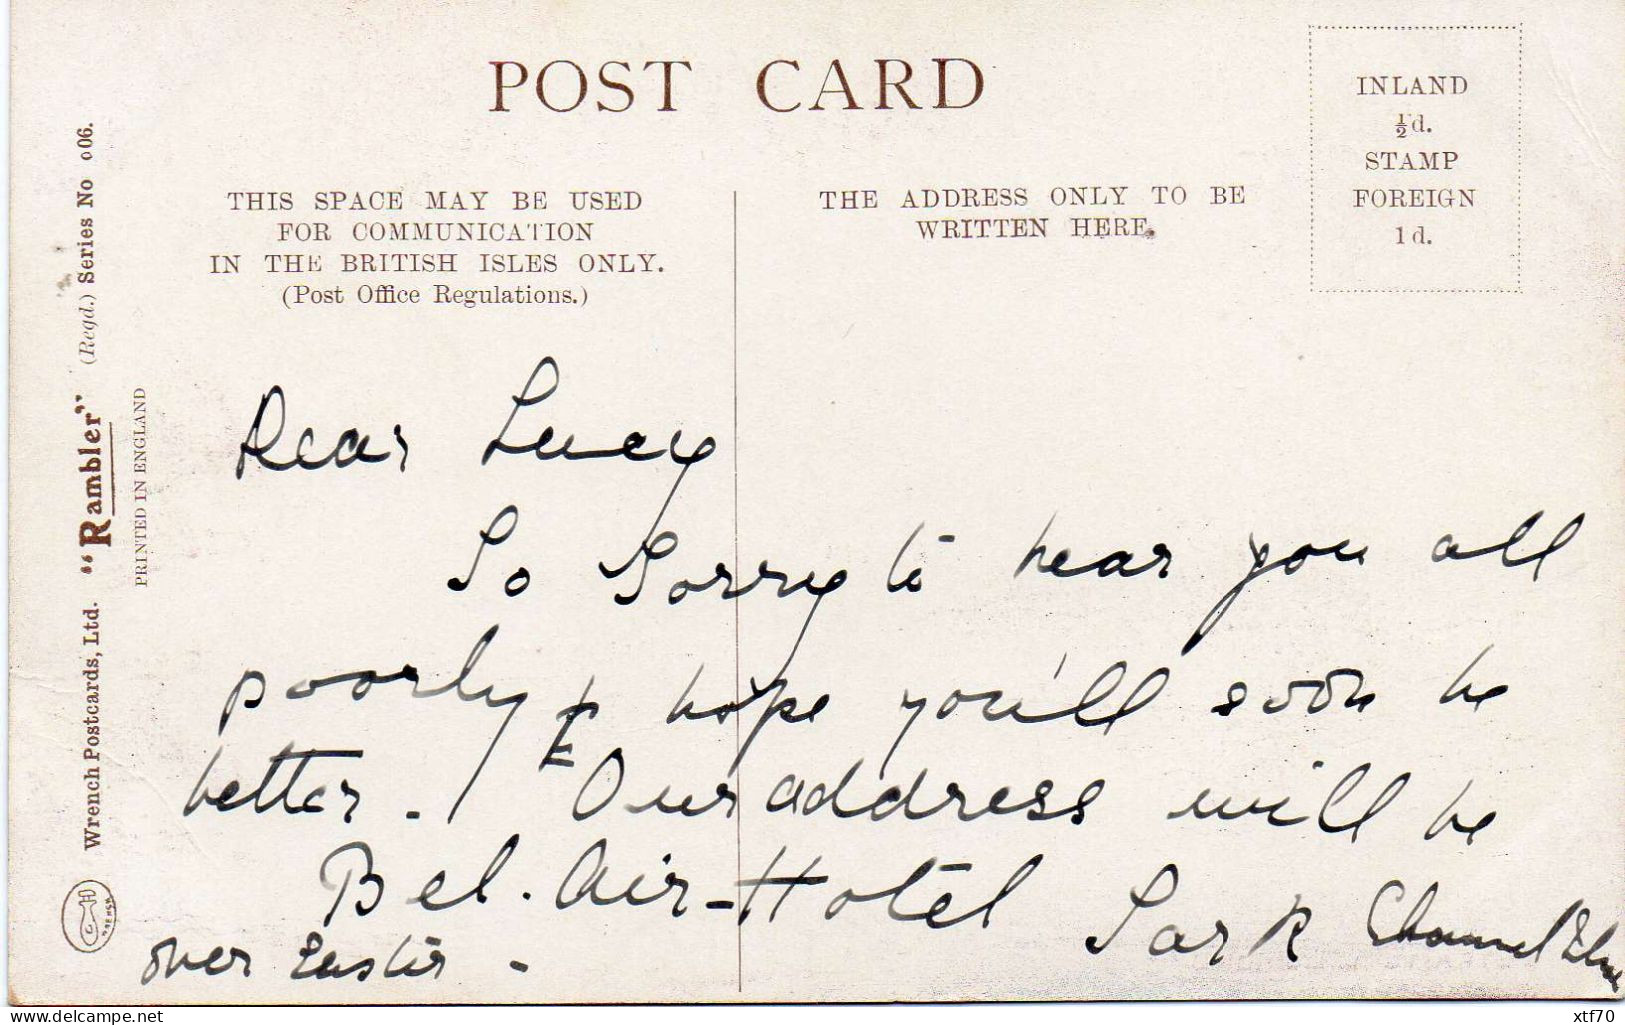 POST CARD
INLAND
½d.
STAMP
FOREIGN
1d.
THIS SPACE MAY BE USED
FOR COMMUNICATION
IN THE BRITISH ISLES ONLY.
(Post Office Regulations.)
THE ADDRESS ONLY TO BE
WRITTEN HERE.
Wrench Postcards, Ltd. "Rambler" (Regd.) Series No o06.
PRINTED IN ENGLAND
WRENCH
Dear Lucy
So Sorry to hear you all
poorly & hope you'll soon be
better. Our address will be
Bel. Air-Hotel Sark Channel
over Easter -
www.delcampe.net
xtf70